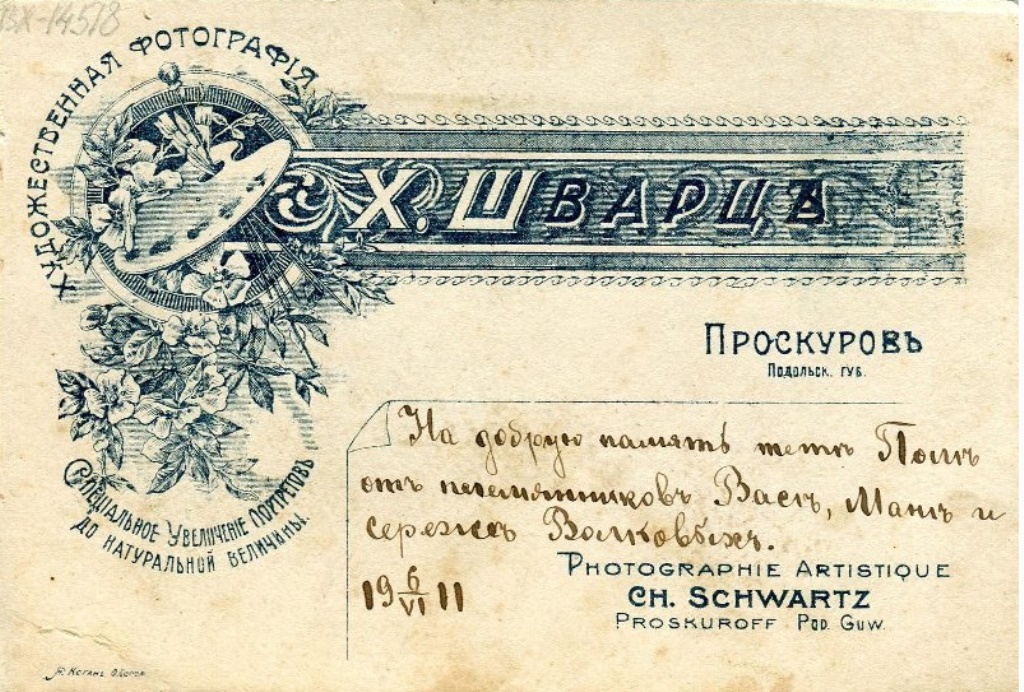 ВХ-14578
ХУДОЖЕСТВЕННАЯ ФОТОГРАФІЯ
Х. ШВАРЦЪ
ПРОСКУРОВЪ
ПОДОЛЬСК. ГУБ.
На добрую память тетѣ Полѣ
отъ племянниковъ Васи, Мани и
сережи Волковыхъ.
19 6/VI 11
СПЕЦІАЛЬНОЕ УВЕЛИЧЕНІЕ ПОРТРЕТОВЪ
ДО НАТУРАЛЬНОЙ ВЕЛИЧИНЫ.
PHOTOGRAPHIE ARTISTIQUE
CH. SCHWARTZ
PROSKUROFF POD. GUW.
КОГАНЪ